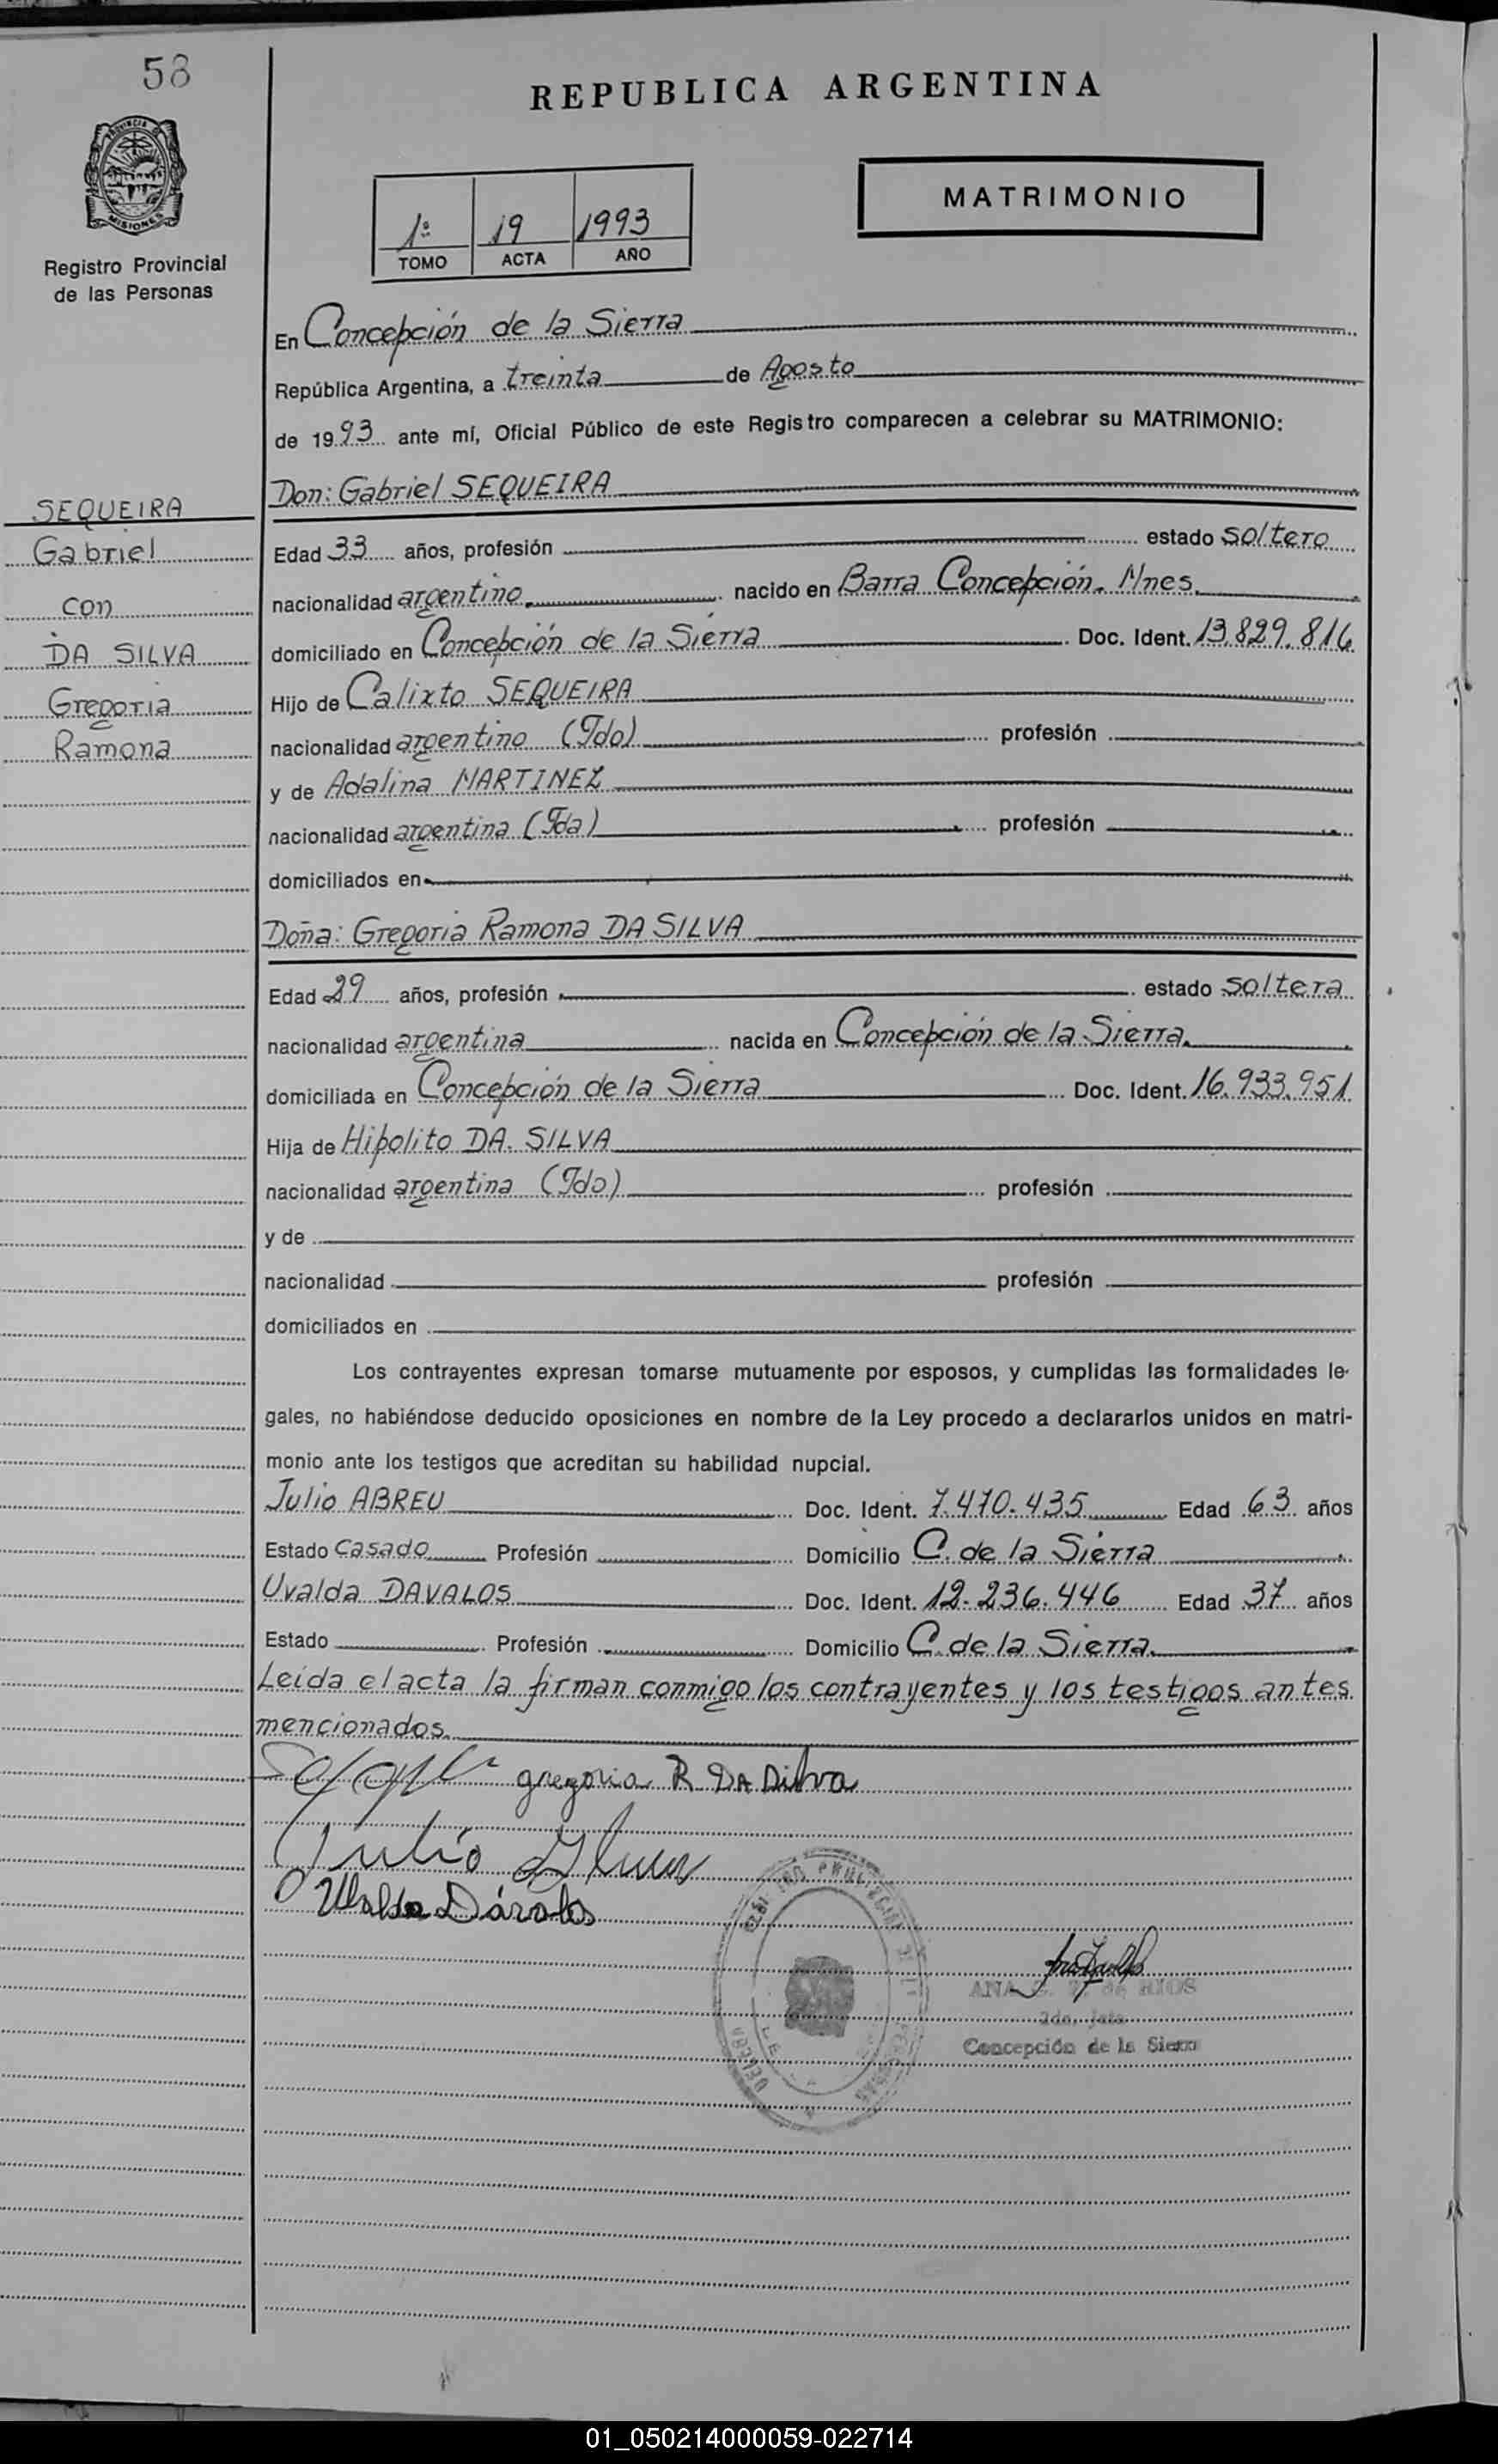 58
REPUBLICA ARGENTINA
PROVINCIA DE
MISIONES
Registro Provincial
de las Personas
1º 19 1993
TOMO ACTA AÑO
MATRIMONIO
En Concepción de la Sierra
República Argentina, a treinta de Agosto
de 1993 ante mí, Oficial Público de este Registro comparecen a celebrar su MATRIMONIO:
SEQUEIRA
Gabriel
con
DA SILVA
Gregoria
Ramona
Don: Gabriel SEQUEIRA
Edad 33 años, profesión estado soltero
nacionalidad argentino. nacido en Barra Concepción. Mnes.
domiciliado en Concepción de la Sierra Doc. Ident. 13.829.816
Hijo de Calixto SEQUEIRA
nacionalidad argentino (Fdo) profesión
y de Adalina MARTINEZ
nacionalidad argentina (Fda) profesión
domiciliados en
Doña: Gregoria Ramona DA SILVA
Edad 29 años, profesión estado soltera
nacionalidad argentina nacida en Concepción de la Sierra.
domiciliada en Concepción de la Sierra Doc. Ident. 16.933.951
Hija de Hipolito DA. SILVA
nacionalidad argentina (Fdo) profesión
y de
nacionalidad profesión
domiciliados en
Los contrayentes expresan tomarse mutuamente por esposos, y cumplidas las formalidades le-
gales, no habiéndose deducido oposiciones en nombre de la Ley procedo a declararlos unidos en matri-
monio ante los testigos que acreditan su habilidad nupcial.
Julio ABREU Doc. Ident. 7.470.435 Edad 63 años
Estado Casado Profesión Domicilio C. de la Sierra
Uvalda DAVALOS Doc. Ident. 12.236.446 Edad 37 años
Estado Profesión Domicilio C. de la Sierra.
Leída el acta la firman conmigo los contrayentes y los testigos antes
mencionados.
gregoria R DA Silva
Julio
Ubalda Dávalos
ANA de RIOS
Concepción de la Sierra
01_050214000059-022714